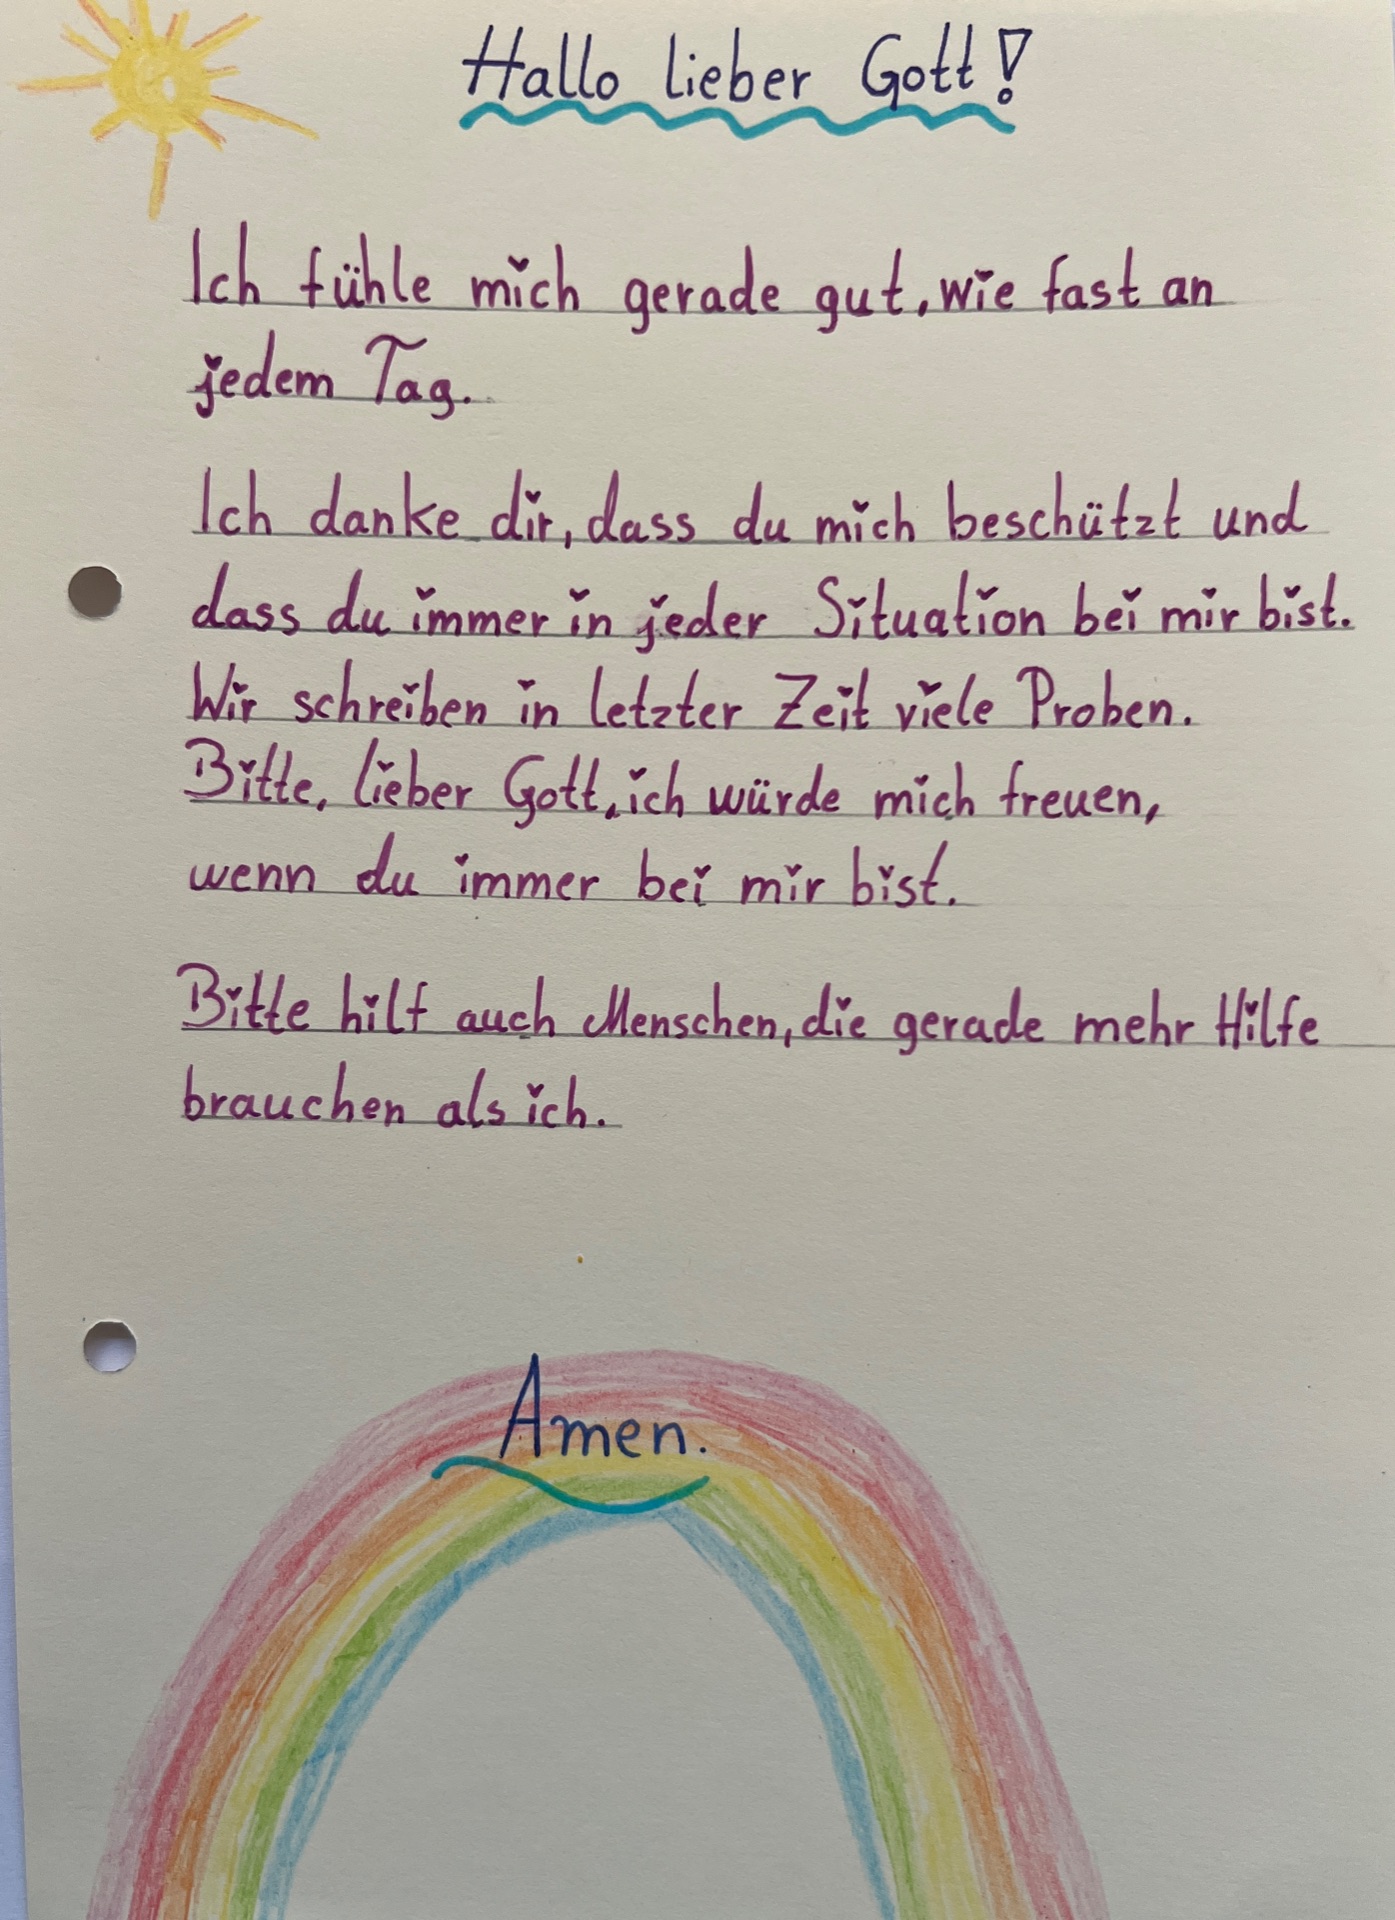 Hallo lieber Gott!
Ich fühle mich gerade gut, wie fast an
jedem Tag.
Ich danke dir, dass du mich beschützt und
dass du immer in jeder Situation bei mir bist.
Wir schreiben in letzter Zeit viele Proben.
Bitte, lieber Gott, ich würde mich freuen,
wenn du immer bei mir bist.
Bitte hilf auch Menschen, die gerade mehr Hilfe
brauchen als ich.
Amen.